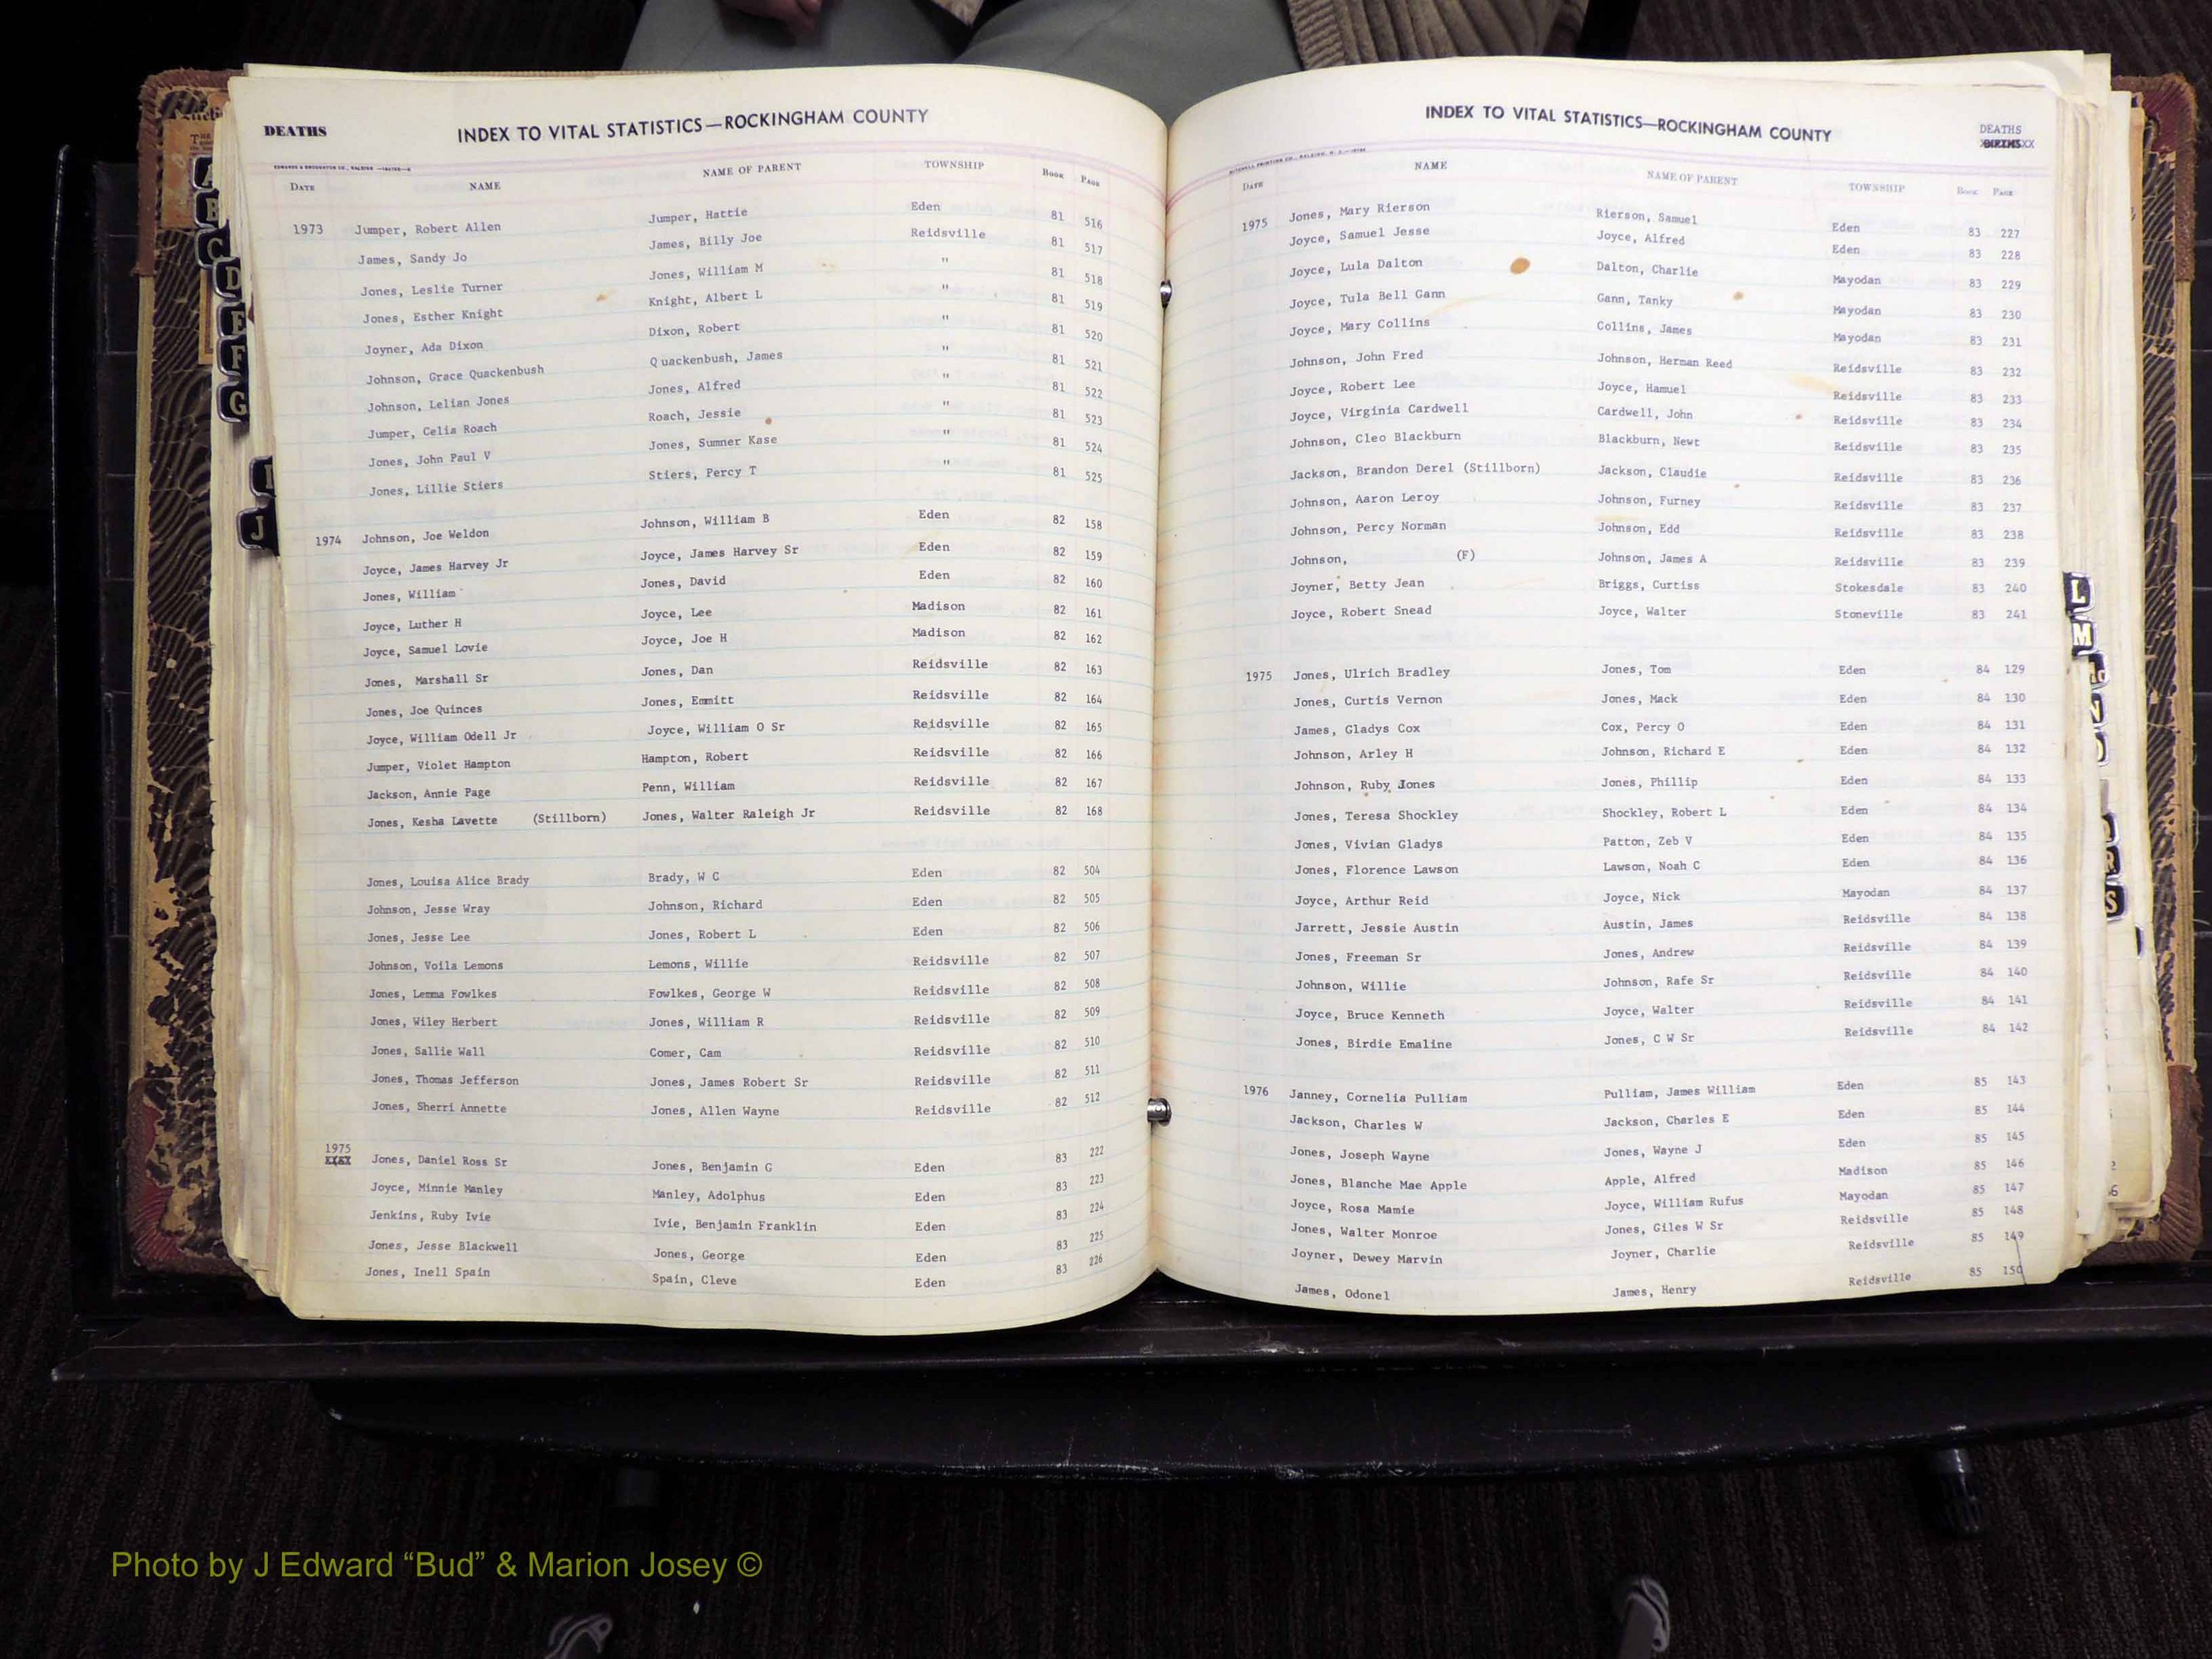 DEATHS
INDEX TO VITAL STATISTICS—ROCKINGHAM COUNTY
DATE NAME NAME OF PARENT TOWNSHIP BOOK PAGE
1973 Jumper, Robert Allen Jumper, Hattie Eden 81 516
James, Sandy Jo James, Billy Joe Reidsville 81 517
Jones, Leslie Turner Jones, William M " 81 518
Jones, Esther Knight Knight, Albert L " 81 519
Joyner, Ada Dixon Dixon, Robert " 81 520
Johnson, Grace Quackenbush Quackenbush, James " 81 521
Johnson, Lelian Jones Jones, Alfred " 81 522
Jumper, Celia Roach Roach, Jessie " 81 523
Jones, John Paul V Jones, Sumner Kase " 81 524
Jones, Lillie Stiers Stiers, Percy T " 81 525
1974 Johnson, Joe Weldon Johnson, William B Eden 82 158
Joyce, James Harvey Jr Joyce, James Harvey Sr Eden 82 159
Jones, William Jones, David Eden 82 160
Joyce, Luther H Joyce, Lee Madison 82 161
Joyce, Samuel Lovie Joyce, Joe H Madison 82 162
Jones, Marshall Sr Jones, Dan Reidsville 82 163
Jones, Joe Quinces Jones, Emmitt Reidsville 82 164
Joyce, William Odell Jr Joyce, William O Sr Reidsville 82 165
Jumper, Violet Hampton Hampton, Robert Reidsville 82 166
Jackson, Annie Page Penn, William Reidsville 82 167
Jones, Kesha Lavette (Stillborn) Jones, Walter Raleigh Jr Reidsville 82 168
Jones, Louisa Alice Brady Brady, W C Eden 82 504
Johnson, Jesse Wray Johnson, Richard Eden 82 505
Jones, Jesse Lee Jones, Robert L Eden 82 506
Johnson, Voila Lemons Lemons, Willie Reidsville 82 507
Jones, Lemma Fowlkes Fowlkes, George W Reidsville 82 508
Jones, Wiley Herbert Jones, William R Reidsville 82 509
Jones, Sallie Wall Comer, Cam Reidsville 82 510
Jones, Thomas Jefferson Jones, James Robert Sr Reidsville 82 511
Jones, Sherri Annette Jones, Allen Wayne Reidsville 82 512
1975 Jones, Daniel Ross Sr Jones, Benjamin G Eden 83 222
Joyce, Minnie Manley Manley, Adolphus Eden 83 223
Jenkins, Ruby Ivie Ivie, Benjamin Franklin Eden 83 224
Jones, Jesse Blackwell Jones, George Eden 83 225
Jones, Inell Spain Spain, Cleve Eden 83 226
A
B
C
D
E
F
G
I
J
INDEX TO VITAL STATISTICS—ROCKINGHAM COUNTY
DEATHS
BIRTHS
DATE NAME NAME OF PARENT TOWNSHIP BOOK PAGE
1975 Jones, Mary Rierson Rierson, Samuel Eden 83 227
Joyce, Samuel Jesse Joyce, Alfred Eden 83 228
Joyce, Lula Dalton Dalton, Charlie Mayodan 83 229
Joyce, Tula Bell Gann Gann, Tanky Mayodan 83 230
Joyce, Mary Collins Collins, James Mayodan 83 231
Johnson, John Fred Johnson, Herman Reed Reidsville 83 232
Joyce, Robert Lee Joyce, Hamuel Reidsville 83 233
Joyce, Virginia Cardwell Cardwell, John Reidsville 83 234
Johnson, Cleo Blackburn Blackburn, Newt Reidsville 83 235
Jackson, Brandon Derel (Stillborn) Jackson, Claudie Reidsville 83 236
Johnson, Aaron Leroy Johnson, Furney Reidsville 83 237
Johnson, Percy Norman Johnson, Edd Reidsville 83 238
Johnson, (F) Johnson, James A Reidsville 83 239
Joyner, Betty Jean Briggs, Curtiss Stokesdale 83 240
Joyce, Robert Snead Joyce, Walter Stoneville 83 241
1975 Jones, Ulrich Bradley Jones, Tom Eden 84 129
Jones, Curtis Vernon Jones, Mack Eden 84 130
James, Gladys Cox Cox, Percy O Eden 84 131
Johnson, Arley H Johnson, Richard E Eden 84 132
Johnson, Ruby Jones Jones, Phillip Eden 84 133
Jones, Teresa Shockley Shockley, Robert L Eden 84 134
Jones, Vivian Gladys Patton, Zeb V Eden 84 135
Jones, Florence Lawson Lawson, Noah C Eden 84 136
Joyce, Arthur Reid Joyce, Nick Mayodan 84 137
Jarrett, Jessie Austin Austin, James Reidsville 84 138
Jones, Freeman Sr Jones, Andrew Reidsville 84 139
Johnson, Willie Johnson, Rafe Sr Reidsville 84 140
Joyce, Bruce Kenneth Joyce, Walter Reidsville 84 141
Jones, Birdie Emaline Jones, C W Sr Reidsville 84 142
1976 Janney, Cornelia Pulliam Pulliam, James William Eden 85 143
Jackson, Charles W Jackson, Charles E Eden 85 144
Jones, Joseph Wayne Jones, Wayne J Eden 85 145
Jones, Blanche Mae Apple Apple, Alfred Madison 85 146
Joyce, Rosa Mamie Joyce, William Rufus Mayodan 85 147
Jones, Walter Monroe Jones, Giles W Sr Reidsville 85 148
Joyner, Dewey Marvin Joyner, Charlie Reidsville 85 149
James, Odonel James, Henry Reidsville 85 150
L
M
N
O
R
S
Photo by J Edward “Bud” & Marion Josey ©